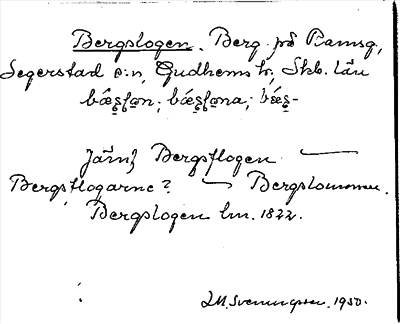 Bergslogen. Berg på Ramsg,
Segerstad s:n, Gudhems h., Skb. län
bǽs̠l̠o̠n; bǽs̠l̠o̠na; bǽs̠-
Jämf Bergsflogen —
Bergsflogarne? — Bergslommen.
Bergslogen lm. 1822.
J.M. Svenungsson. 1930.